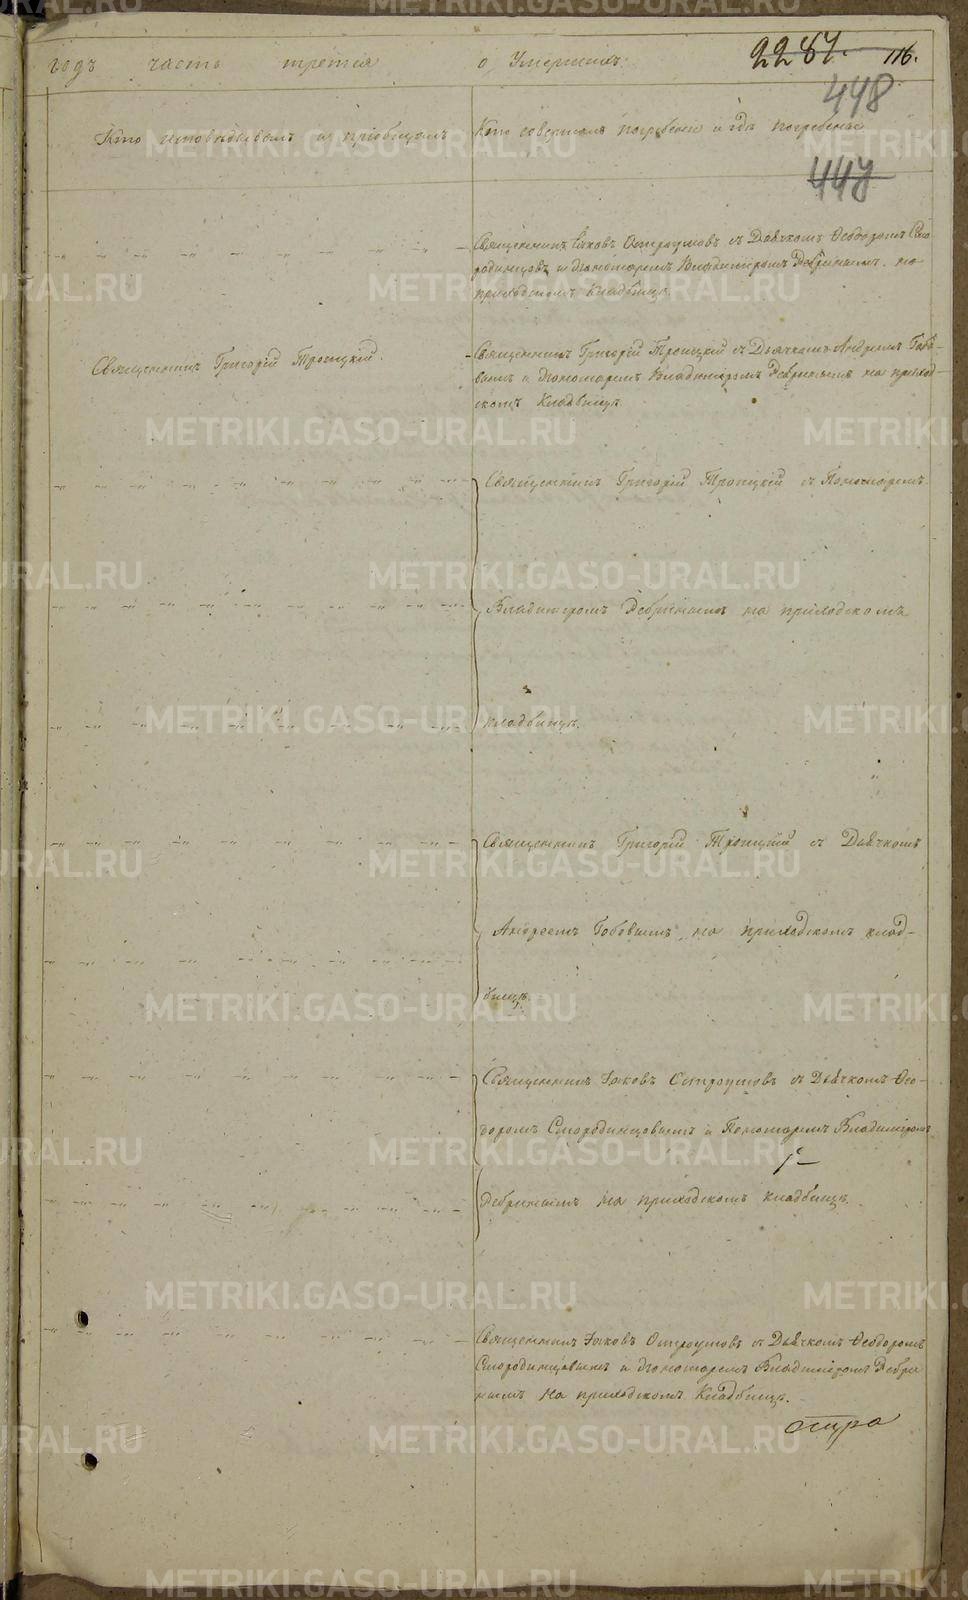 годъ часть третія о Умершихъ 2287. 116.
448
Кто исповѣдывалъ и пріобщалъ
Кто совершалъ погребеніе и гдѣ погребены
447
Священникъ Іаковъ Остроумовъ съ Дьячкомъ Ѳеодоромъ Смо-
родинцовъ и Пономаремъ Владиміромъ Ребринымъ на
приходскомъ кладбищѣ.
Священникъ Григорій Троицкій.
Священникъ Григорій Троицкій съ Дьячкомъ Андреемъ Бабо-
вымъ и Пономаремъ Владиміромъ Ребринымъ на приход-
скомъ Кладбищѣ.
Священникъ Григорій Троицкій съ Пономаремъ
Владиміромъ Ребринымъ на приходскомъ
кладбищѣ.
Священникъ Григорій Троицкій съ Дьячкомъ
Андреемъ на приходскомъ клад-
бищѣ.
Священникъ Іаковъ Остроумовъ съ Дьячкомъ Ѳео-
доромъ Смородинцовымъ и Пономаремъ Владиміромъ
Ребринымъ на приходскомъ кладбищѣ.
Священникъ Іаковъ Остроумовъ съ Дьячкомъ Ѳеодоромъ
Смородинцовымъ и Пономаремъ Владиміромъ Ребри
нымъ на приходскомъ Кладбищѣ.
Остро
METRIKI.GASO-URAL.RU